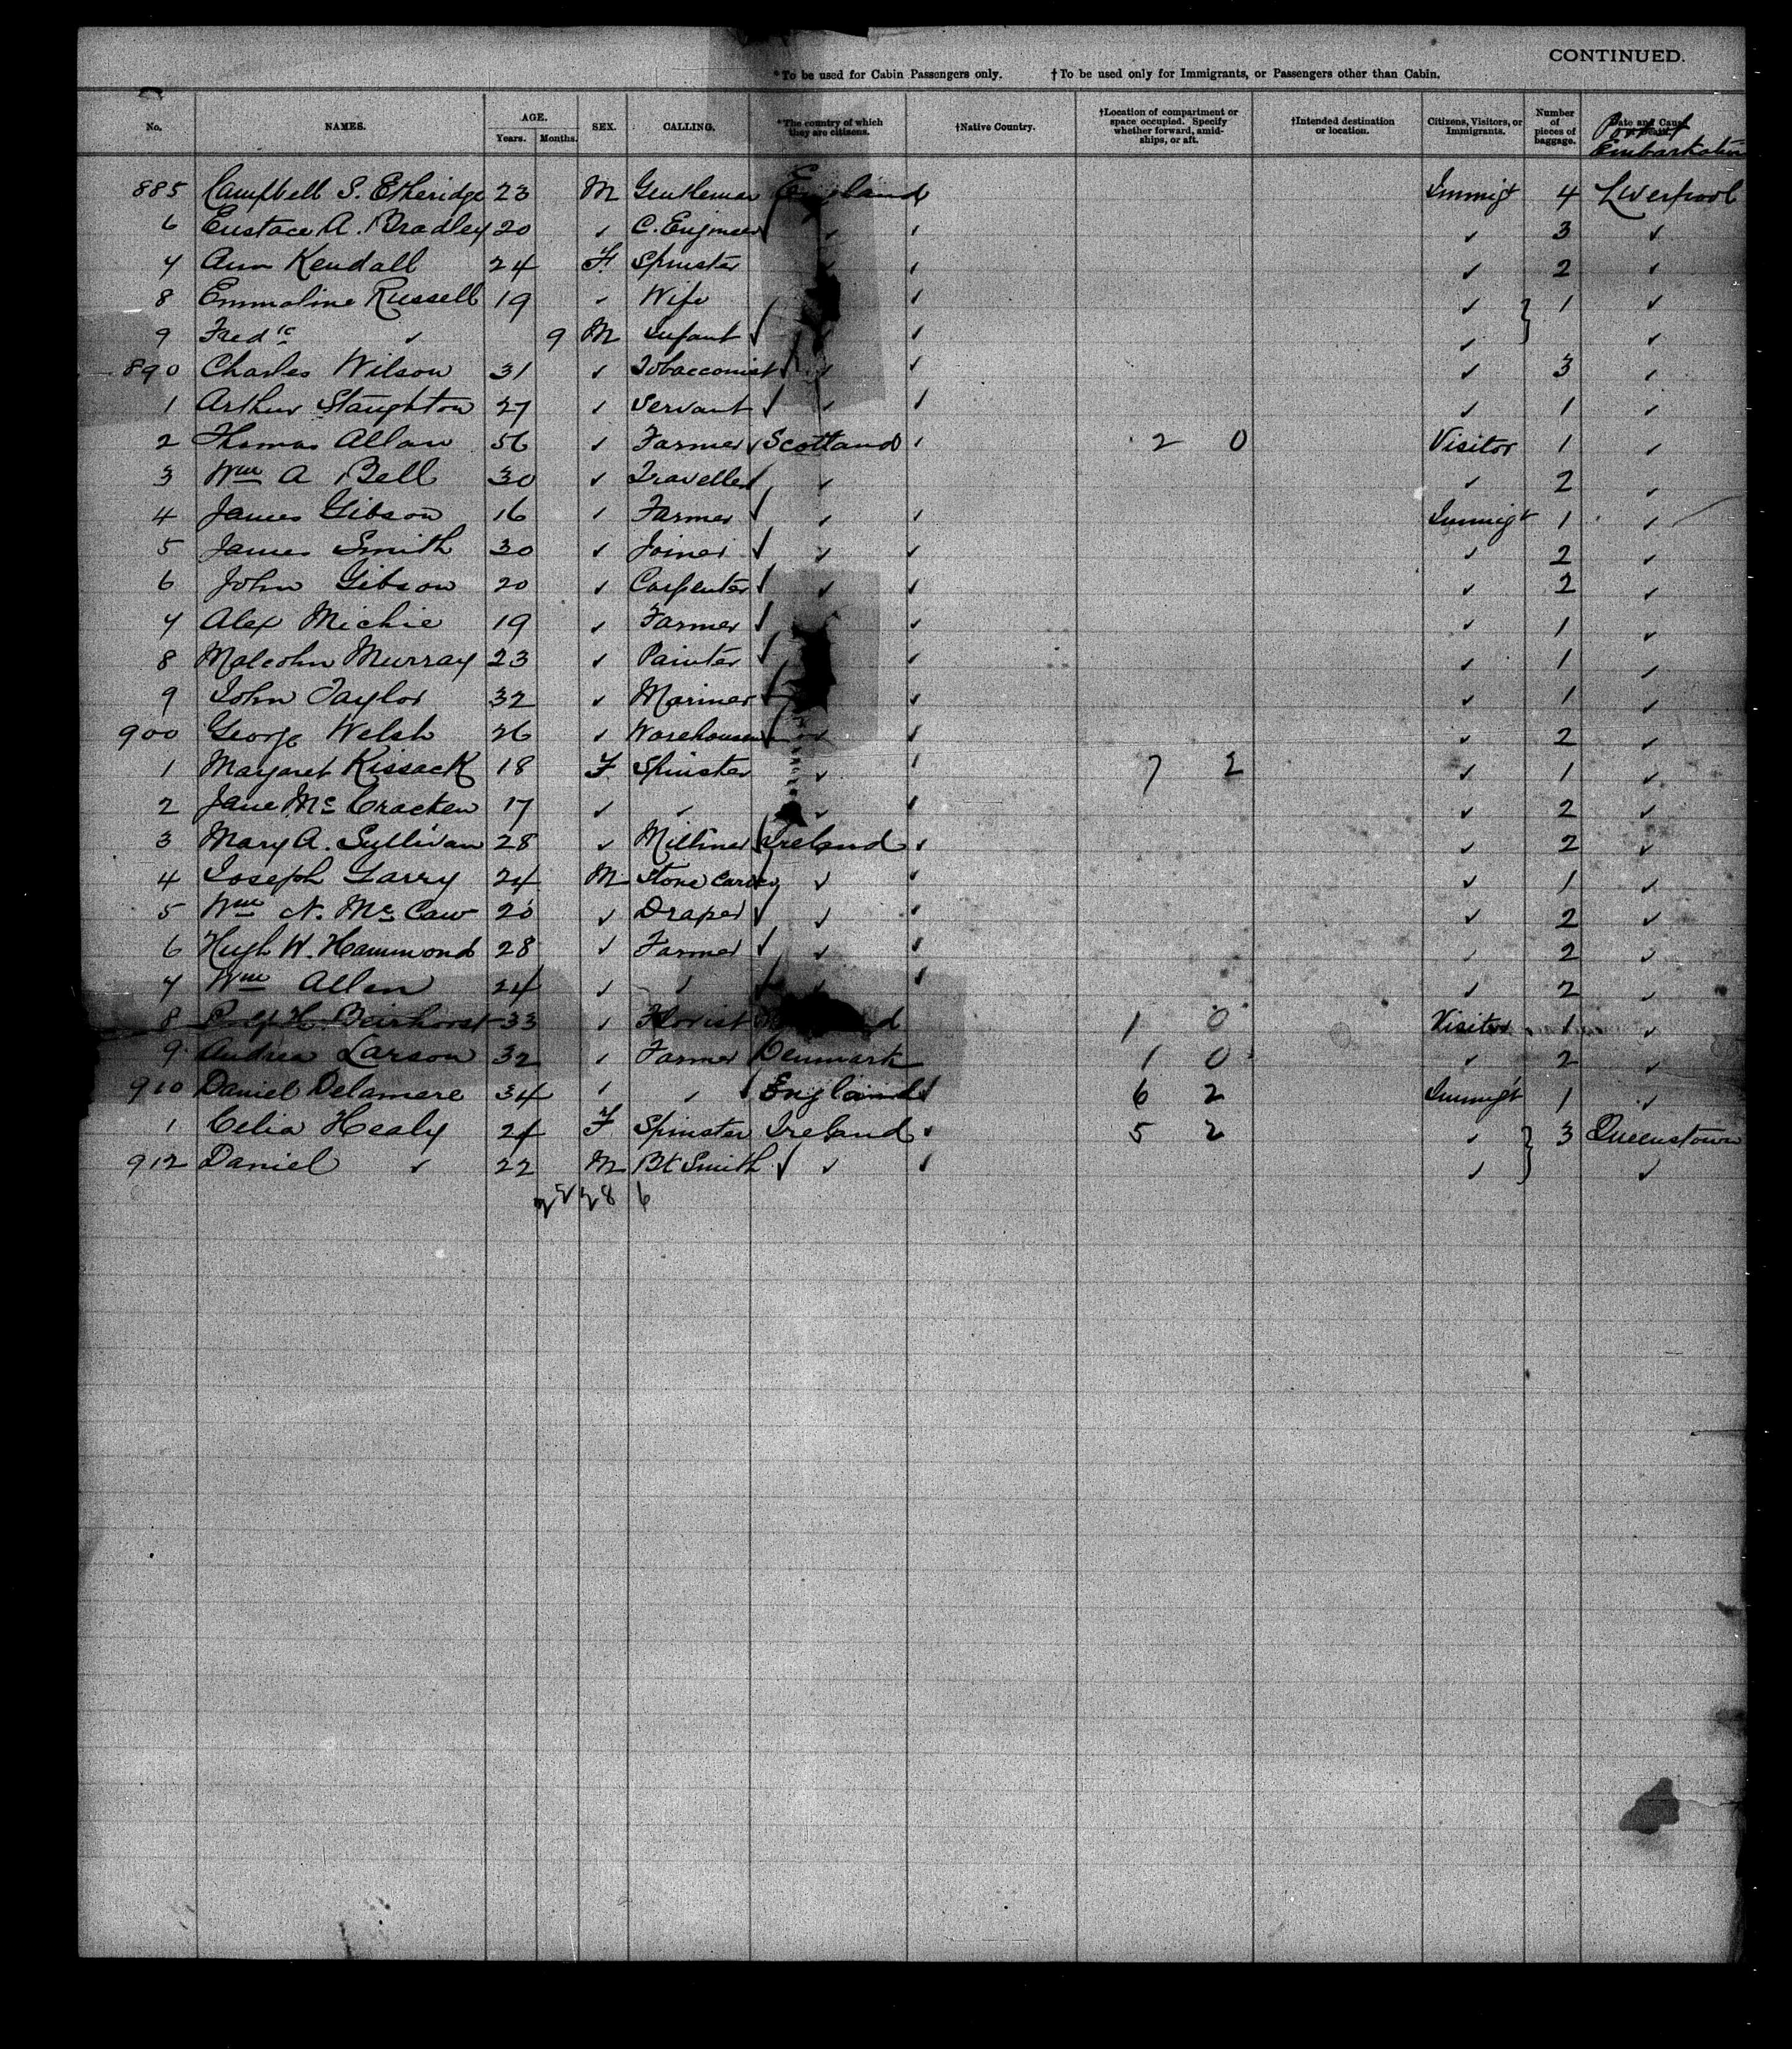 CONTINUED.
*To be used for Cabin Passengers only. †To be used only for Immigrants, or Passengers other than Cabin.
No. NAMES. AGE. Years. Months. SEX. CALLING. *The country of which they are citizens. †Native Country. †Location of compartment or space occupied. Specify whether forward, amidships, or aft. †Intended destination or location. Citizens, Visitors, or Immigrants. Number of pieces of baggage. Date and Cause Port of Embarkation
885 Campbell S. Etheridge 23 M Gentleman England Immigt 4 Liverpool
6 Eustace A. Bradley 20 ✓ C. Engineer ✓ ✓ ✓ ✓ 3 ✓
7 Ann Kendall 24 F. Spinster ✓ ✓ 2 ✓
8 Emmaline Russell 19 ✓ Wife ✓ ✓ 1 ✓
9 Fredic ✓ 9 M Infant ✓ ✓ ✓ ✓ ✓
890 Charles Wilson 31 ✓ Tobacconist ✓ ✓ ✓ ✓ 3 ✓
1 Arthur Staughton 27 ✓ Servant ✓ ✓ ✓ ✓ 1 ✓
2 Thomas Allan 56 ✓ Farmer ✓ Scotland ✓ 2 0 Visitor 1 ✓
3 Wm A Bell 30 ✓ Traveller ✓ ✓ ✓ 2 ✓
4 James Gibson 16 ✓ Farmer ✓ ✓ ✓ Immigt 1 ✓
5 James Smith 30 ✓ Joiner ✓ ✓ ✓ ✓ 2 ✓
6 John Gibson 20 ✓ Carpenter ✓ ✓ ✓ ✓ 2 ✓
7 Alex Michie 19 ✓ Farmer ✓ ✓ ✓ 1 ✓
8 Malcolm Murray 23 ✓ Painter ✓ ✓ ✓ 1 ✓
9 John Taylor 32 ✓ Mariner ✓ ✓ ✓ 1 ✓
900 George Welsh 26 ✓ Warehouseman ✓ ✓ ✓ ✓ 2 ✓
1 Margaret Kissack 18 F Spinster ✓ ✓ 7 2 ✓ 1 ✓
2 Jane McCracken 17 ✓ ✓ ✓ ✓ ✓ 2 ✓
3 Mary A. Sullivan 28 ✓ Milliner ✓ Ireland ✓ ✓ 2 ✓
4 Joseph Garry 24 M Stone Carver ✓ ✓ ✓ ✓ 1 ✓
5 Wm N. McCaw 20 ✓ Draper ✓ ✓ ✓ ✓ 2 ✓
6 Hugh W. Hammond 28 ✓ Farmer ✓ ✓ ✓ ✓ 2 ✓
7 Wm Allen 24 ✓ ✓ ✓ ✓ ✓ ✓ 2 ✓
8 H Beirhorst 33 ✓ Florist 1 0 Visitor 1 ✓
9 Andrea Larson 32 ✓ Farmer Denmark 1 0 ✓ 2 ✓
910 Daniel Delamere 34 ✓ ✓ ✓ England ✓ 6 2 Immigt 1 ✓
1 Celia Healy 24 F Spinster Ireland ✓ 5 2 ✓ 3 Queenstown
912 Daniel ✓ 22 M Bk Smith ✓ ✓ ✓ ✓ ✓
28 6